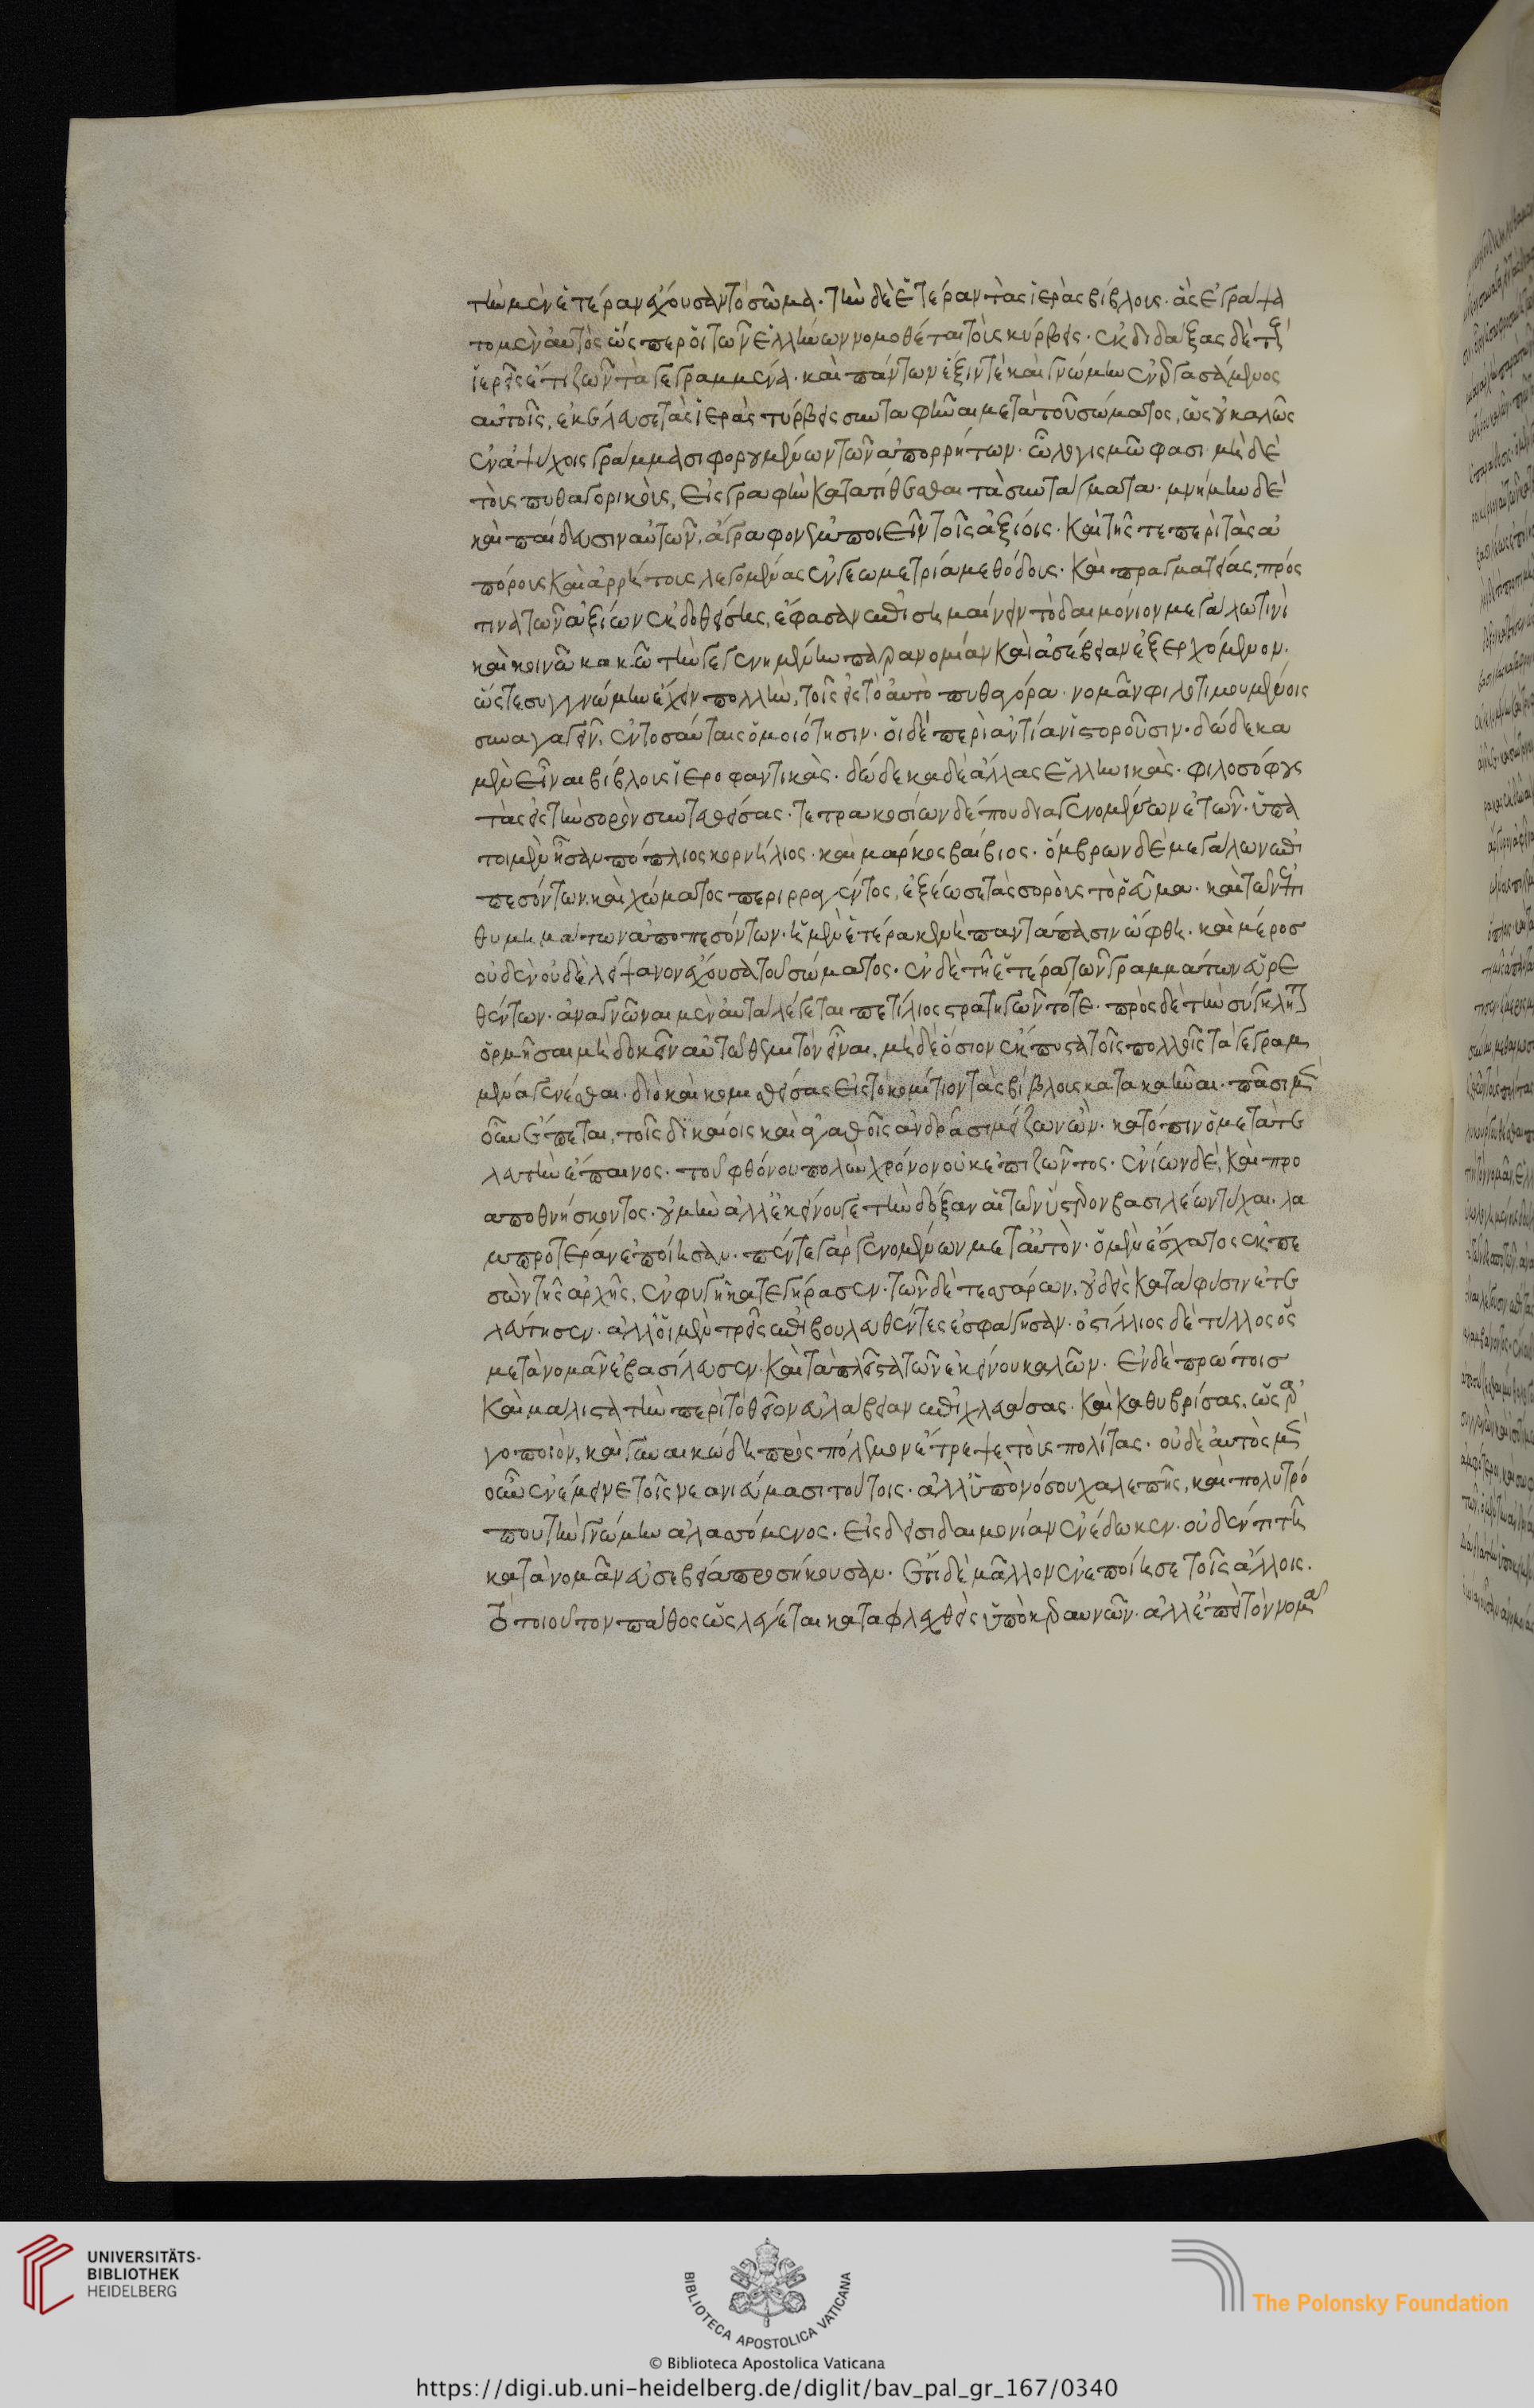 τὴν μὲν ἑτέραν ἔχουσαν τὸ σῶμα· τὴν δὲ ἑτέραν τὰς ἱερὰς βίβλους· ἃς ἐγράψα
το μὲν αὐτὸς ὥσπερ οἱ τῶν ἑλλήνων νομοθέται τοὺς κύρβεις· ἐκδιδάξας δὲ τοὺς
ἱερεῖς ἔτι ζῶν τὰ γεγραμμένα· καὶ πάντων ἕξιν τὲ καὶ γνώμην ἐνεργασάμενος
αὐτοῖς, ἐκέλευσε τὰς ἱερὰς κύρβεις συνταφῆναι μετὰ τοῦ σώματος, ὡς οὐ καλῶς
ἐν ἀψύχοις γράμμασι φορουμένων τῶν ἀπορρήτων· ὧ λογισμῶ φασι μὴ δὲ
τοὺς πυθαγορικοὺς, εἰς γραφὴν κατατίθεσθαι τὰ συντάγματα· μνήμην δὲ
καὶ παίδευσιν αὐτῶν, ἄγραφον ἐμποιεῖν τοῖς ἀξίοις· καὶ τῆς τε περὶ τὰς ἀ
πόρους καὶ ἀρρήτους λεγομένας ἐν γεωμετρία μεθόδους· καὶ πραγματείας, πρός
τινα τῶν ἀξίων ἐκδοθείσης, ἔφασαν ἐπισημαίνειν τὸ δαιμόνιον μεγάλω τινὶ
καὶ κοινῶ κακῶ τὴν γεγενημένην παρανομίαν καὶ ἀσέβειαν ἐξερχόμενον·
ὥστε συγγνώμην ἔχειν πολλὴν, τοῖς εἰς τὸ αὐτὸ πυθαγόρα νομᾶν φιλοτιμουμένοις
συναγαγεῖν, ἐν τοσαύταις ὁμοιότησιν· οἱ δὲ περὶ ἀντίαν ἱστοροῦσιν· δώδεκα
μὲν εἶναι βίβλους ἱεροφαντικὰς· δώδεκα δὲ ἄλλας ἑλληνικὰς· φιλοσόφους
τὰς εἰς τὴν σορὸν συντεθείσας· τετρακοσίων δέ που διαγενομένων ἐτῶν· ὕπα
τοι μὲν ἦσαν πόπλιος κορνήλιος· καὶ μάρκος βαίβιος· ὄμβρων δὲ μεγάλων ἐπι
πεσόντων καὶ χώματος περιρραγέντος, ἐξέωσε τὰς σοροὺς τὸ ῥεῦμα· καὶ τῶν ἐπι
θυμημάτων ἀποπεσόντων· ἡ μὲν ἑτέρα κενὴ παντάπασιν ὤφθη· καὶ μέροσ
οὐδὲν οὐδὲ λείψανον ἔχουσα τοῦ σώματος· ἐν δὲ τῆ ἑτέρα τῶν γραμμάτων εὑρε
θέντων· ἀναγνῶναι μὲν αὐτὰ λέγεται πετίλιος στρατηγῶν τότε· πρὸς δὲ τὴν σύγκλητ
ὁρμῆσαι μὴ δοκεῖν αὐτῶ θεμιτὸν εἶναι, μὴ δὲ ὅσιον ἔκπυστα τοῖς πολλοῖς τὰ γεγραμ
μένα γενέσθαι· διὸ καὶ κομισθείσας εἰς τὸ κομίτιον τὰς βίβλους κατακαῆναι· πᾶσι μὲν
οὖν ἕπεται, τοῖς δικαίοις καὶ ἀγαθοῖς ἀνδράσι μείζων ὢν· κατόπιν ὁ μετὰ τε
λευτὴν ἔπαινος· τοῦ φθόνου πολὺν χρόνον οὐκ ἐπιζῶντος· ἐνίων δὲ, καὶ προ
αποθνήσκοντος· οὐ μὴν ἀλλ' ἐκείνου γε τὴν δόξαν αἱ τῶν ὕστερον βασιλέων τύχαι· λα
μπροτέραν ἐποίησαν· πέντε γὰρ γενομένων μετ' αὐτὸν· ὁ μὲν ἔσχατος ἐκπε
σὼν τῆς ἀρχῆς, ἐν φυγῆ κατεγήρασεν· τῶν δὲ τεσσάρων, οὐδεὶς κατὰ φύσιν ἐτε
λεύτησεν· ἀλλ' οἱ μὲν τρεῖς ἐπιβουλευθέντες ἐσφάγησαν· ὁστίλλιος δὲ τύλλος ὃς
μετὰ νομᾶν ἐβασίλευσεν· καὶ τὰ πλεῖστα τῶν ἐκείνου καλῶν· ἐν δὲ πρώτοισ
καὶ μάλιστα τὴν περὶ τὸ θεῖον εὐλάβειαν ἐπιχλευάσας· καὶ καθυβρίσας, ὡς ἀρ
γοποιὸν, καὶ γυναικώδη πρὸς πόλεμον ἔτρεψε τοὺς πολίτας· οὐδὲ αὐτὸς μὲν
οὖν ἐνέμεινε τοῖς νεανιεύμασι τούτοις· ἀλλ' ὑπὸ νόσου χαλεπῆς, καὶ πολυτρό
που τὴν γνώμην ἀλασσόμενος· εἰς δεισιδαιμονίαν ἐνέδωκεν· οὐδέν τι τῆ
κατὰ νομᾶν εὐσεβεία προσήκουσαν· ἔτι δὲ μᾶλλον ἐνεποίησε τοῖς ἄλλοις·
τὸ τοιοῦτον πάθος ὡς λέγεται καταφλεχθεὶς ὑπὸ κεραυνῶν· ἀλλ' ἐπεὶ τὸν νομᾶ
UNIVERSITÄTS-
BIBLIOTHEK
HEIDELBERG
BIBLIOTECA APOSTOLICA VATICANA
The Polonsky Foundation
© Biblioteca Apostolica Vaticana
https://digi.ub.uni-heidelberg.de/diglit/bav_pal_gr_167/0340